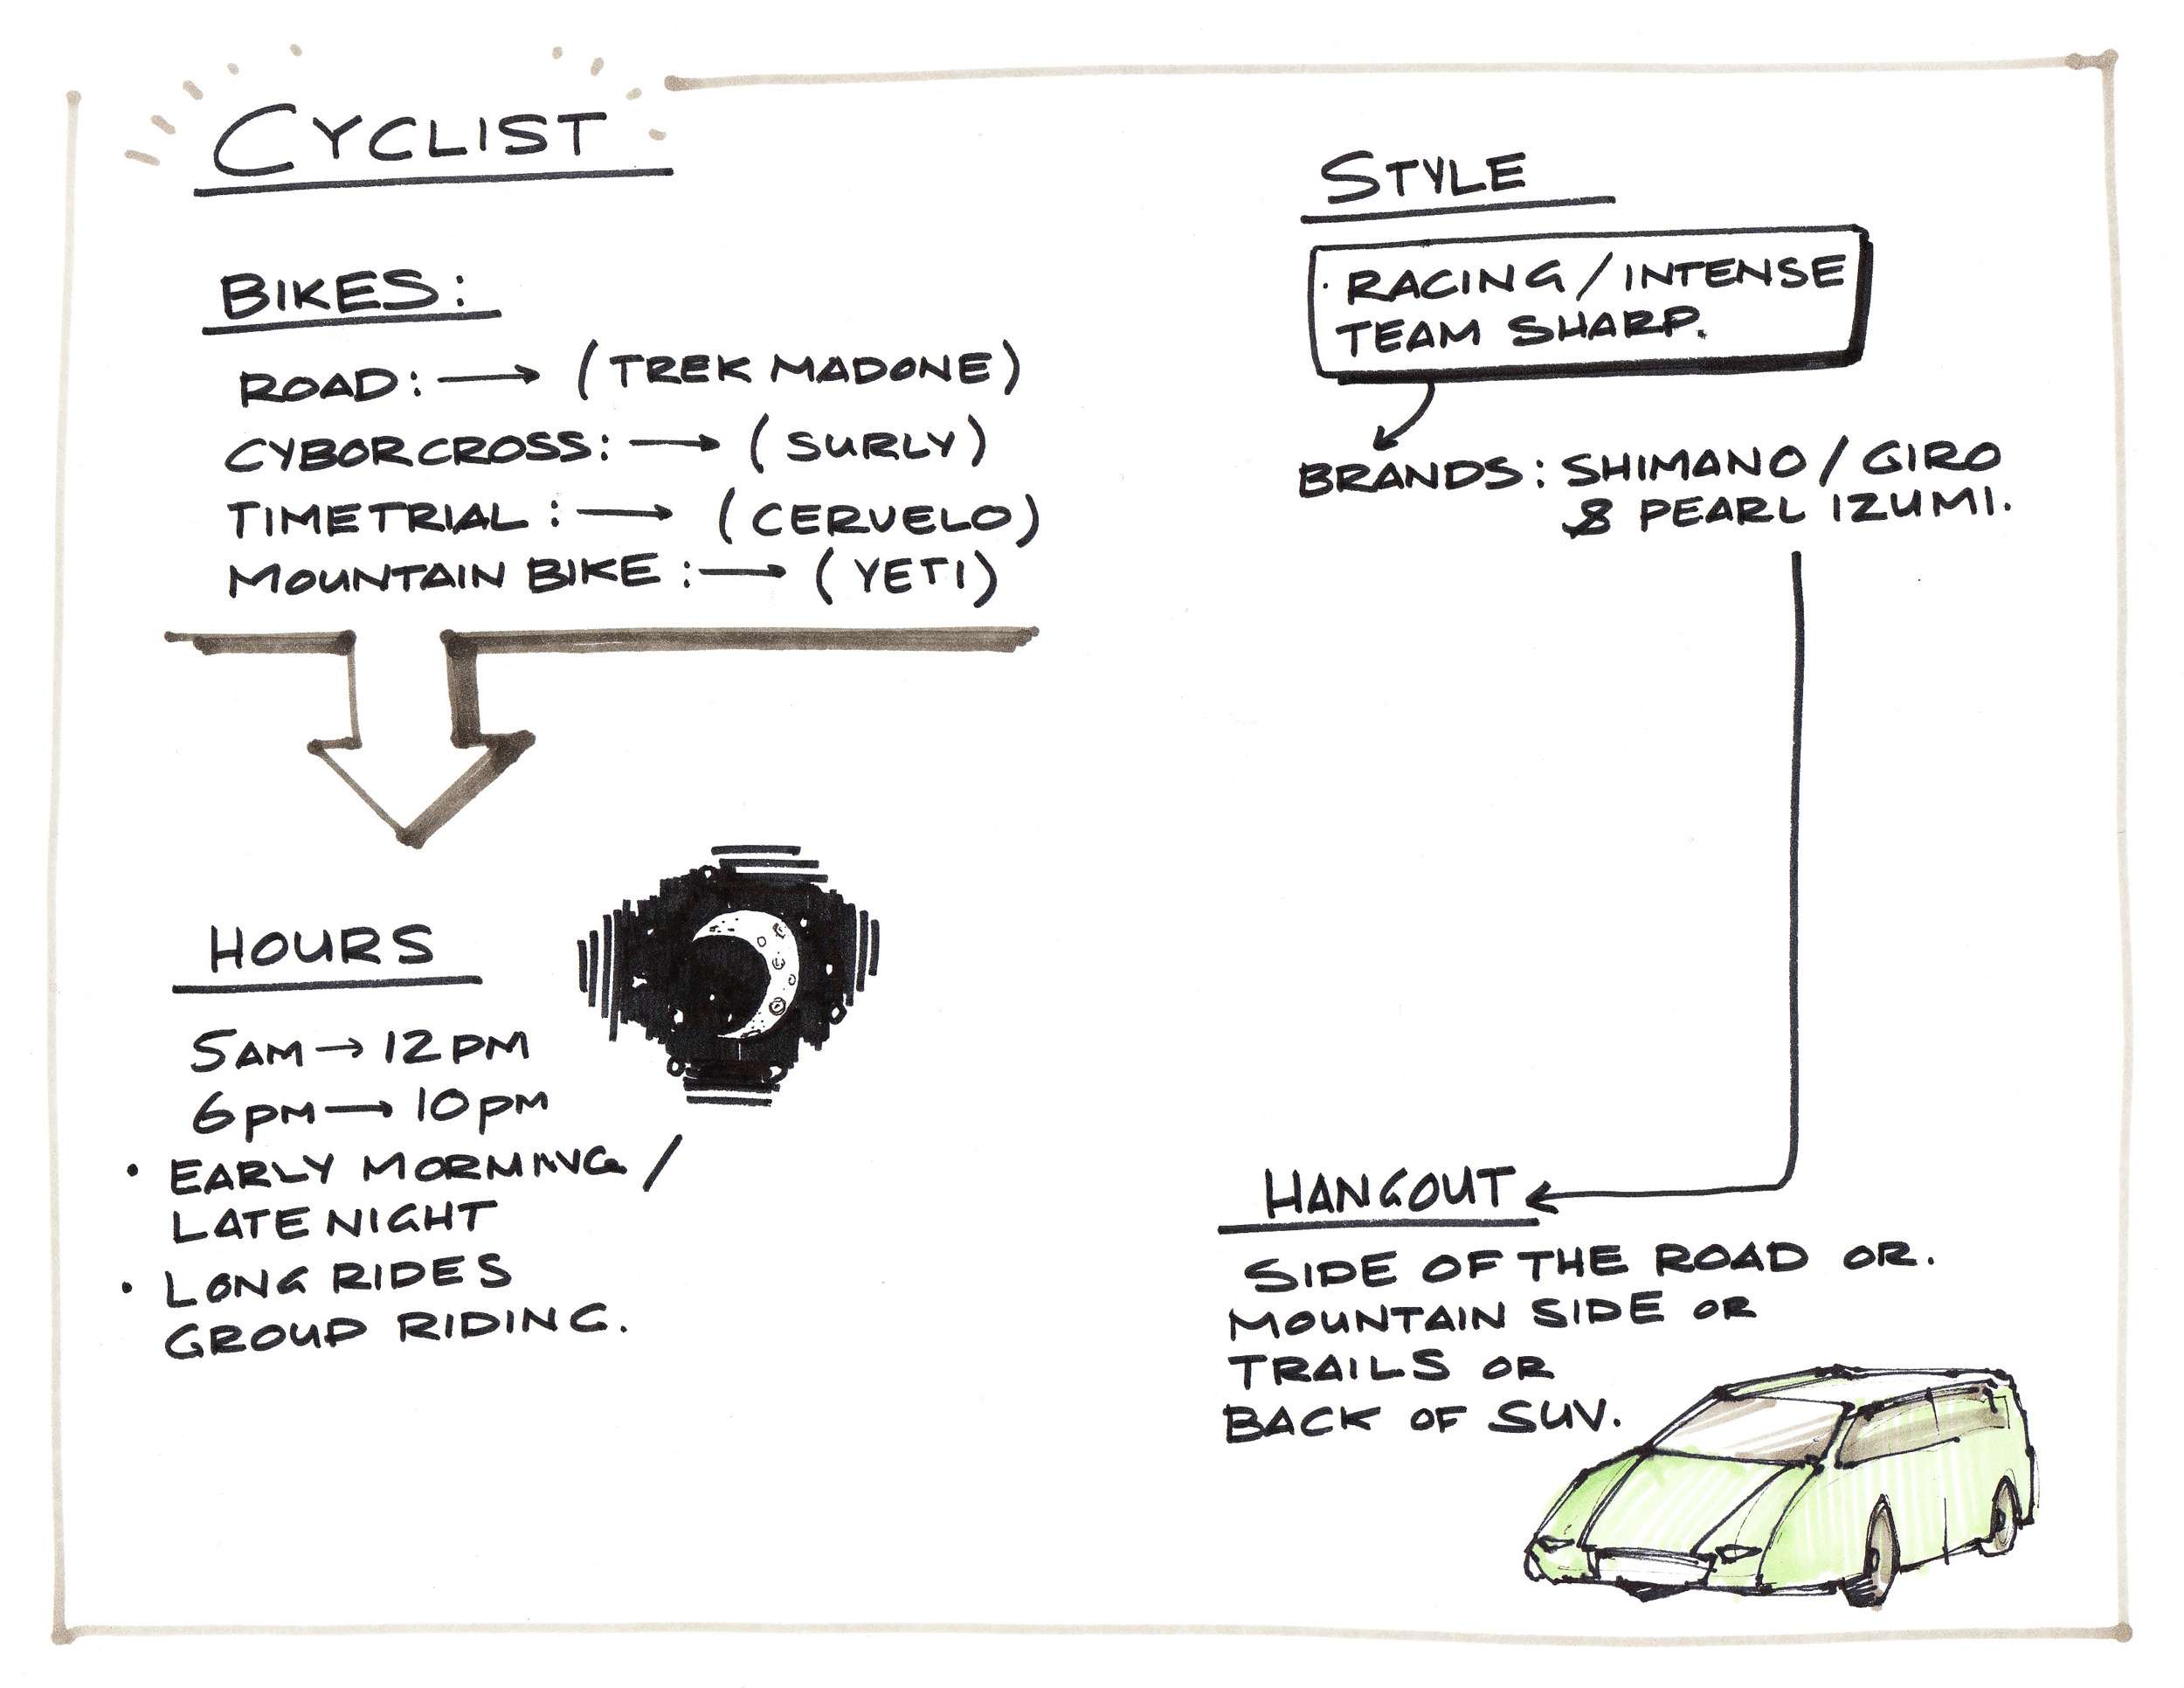 CYCLIST
BIKES:
ROAD: → (TREK MADONE)
CYBORCROSS: → (SURLY)
TIMETRIAL: → (CERVELO)
MOUNTAIN BIKE: → (YETI)
HOURS
5AM → 12PM
6PM → 10PM
• EARLY MORNING /
LATE NIGHT
• LONG RIDES
GROUP RIDING.
STYLE
· RACING / INTENSE
TEAM SHARP.
BRANDS: SHIMANO / GIRO
& PEARL IZUMI.
HANGOUT
SIDE OF THE ROAD OR.
MOUNTAIN SIDE OR
TRAILS OR
BACK OF SUV.